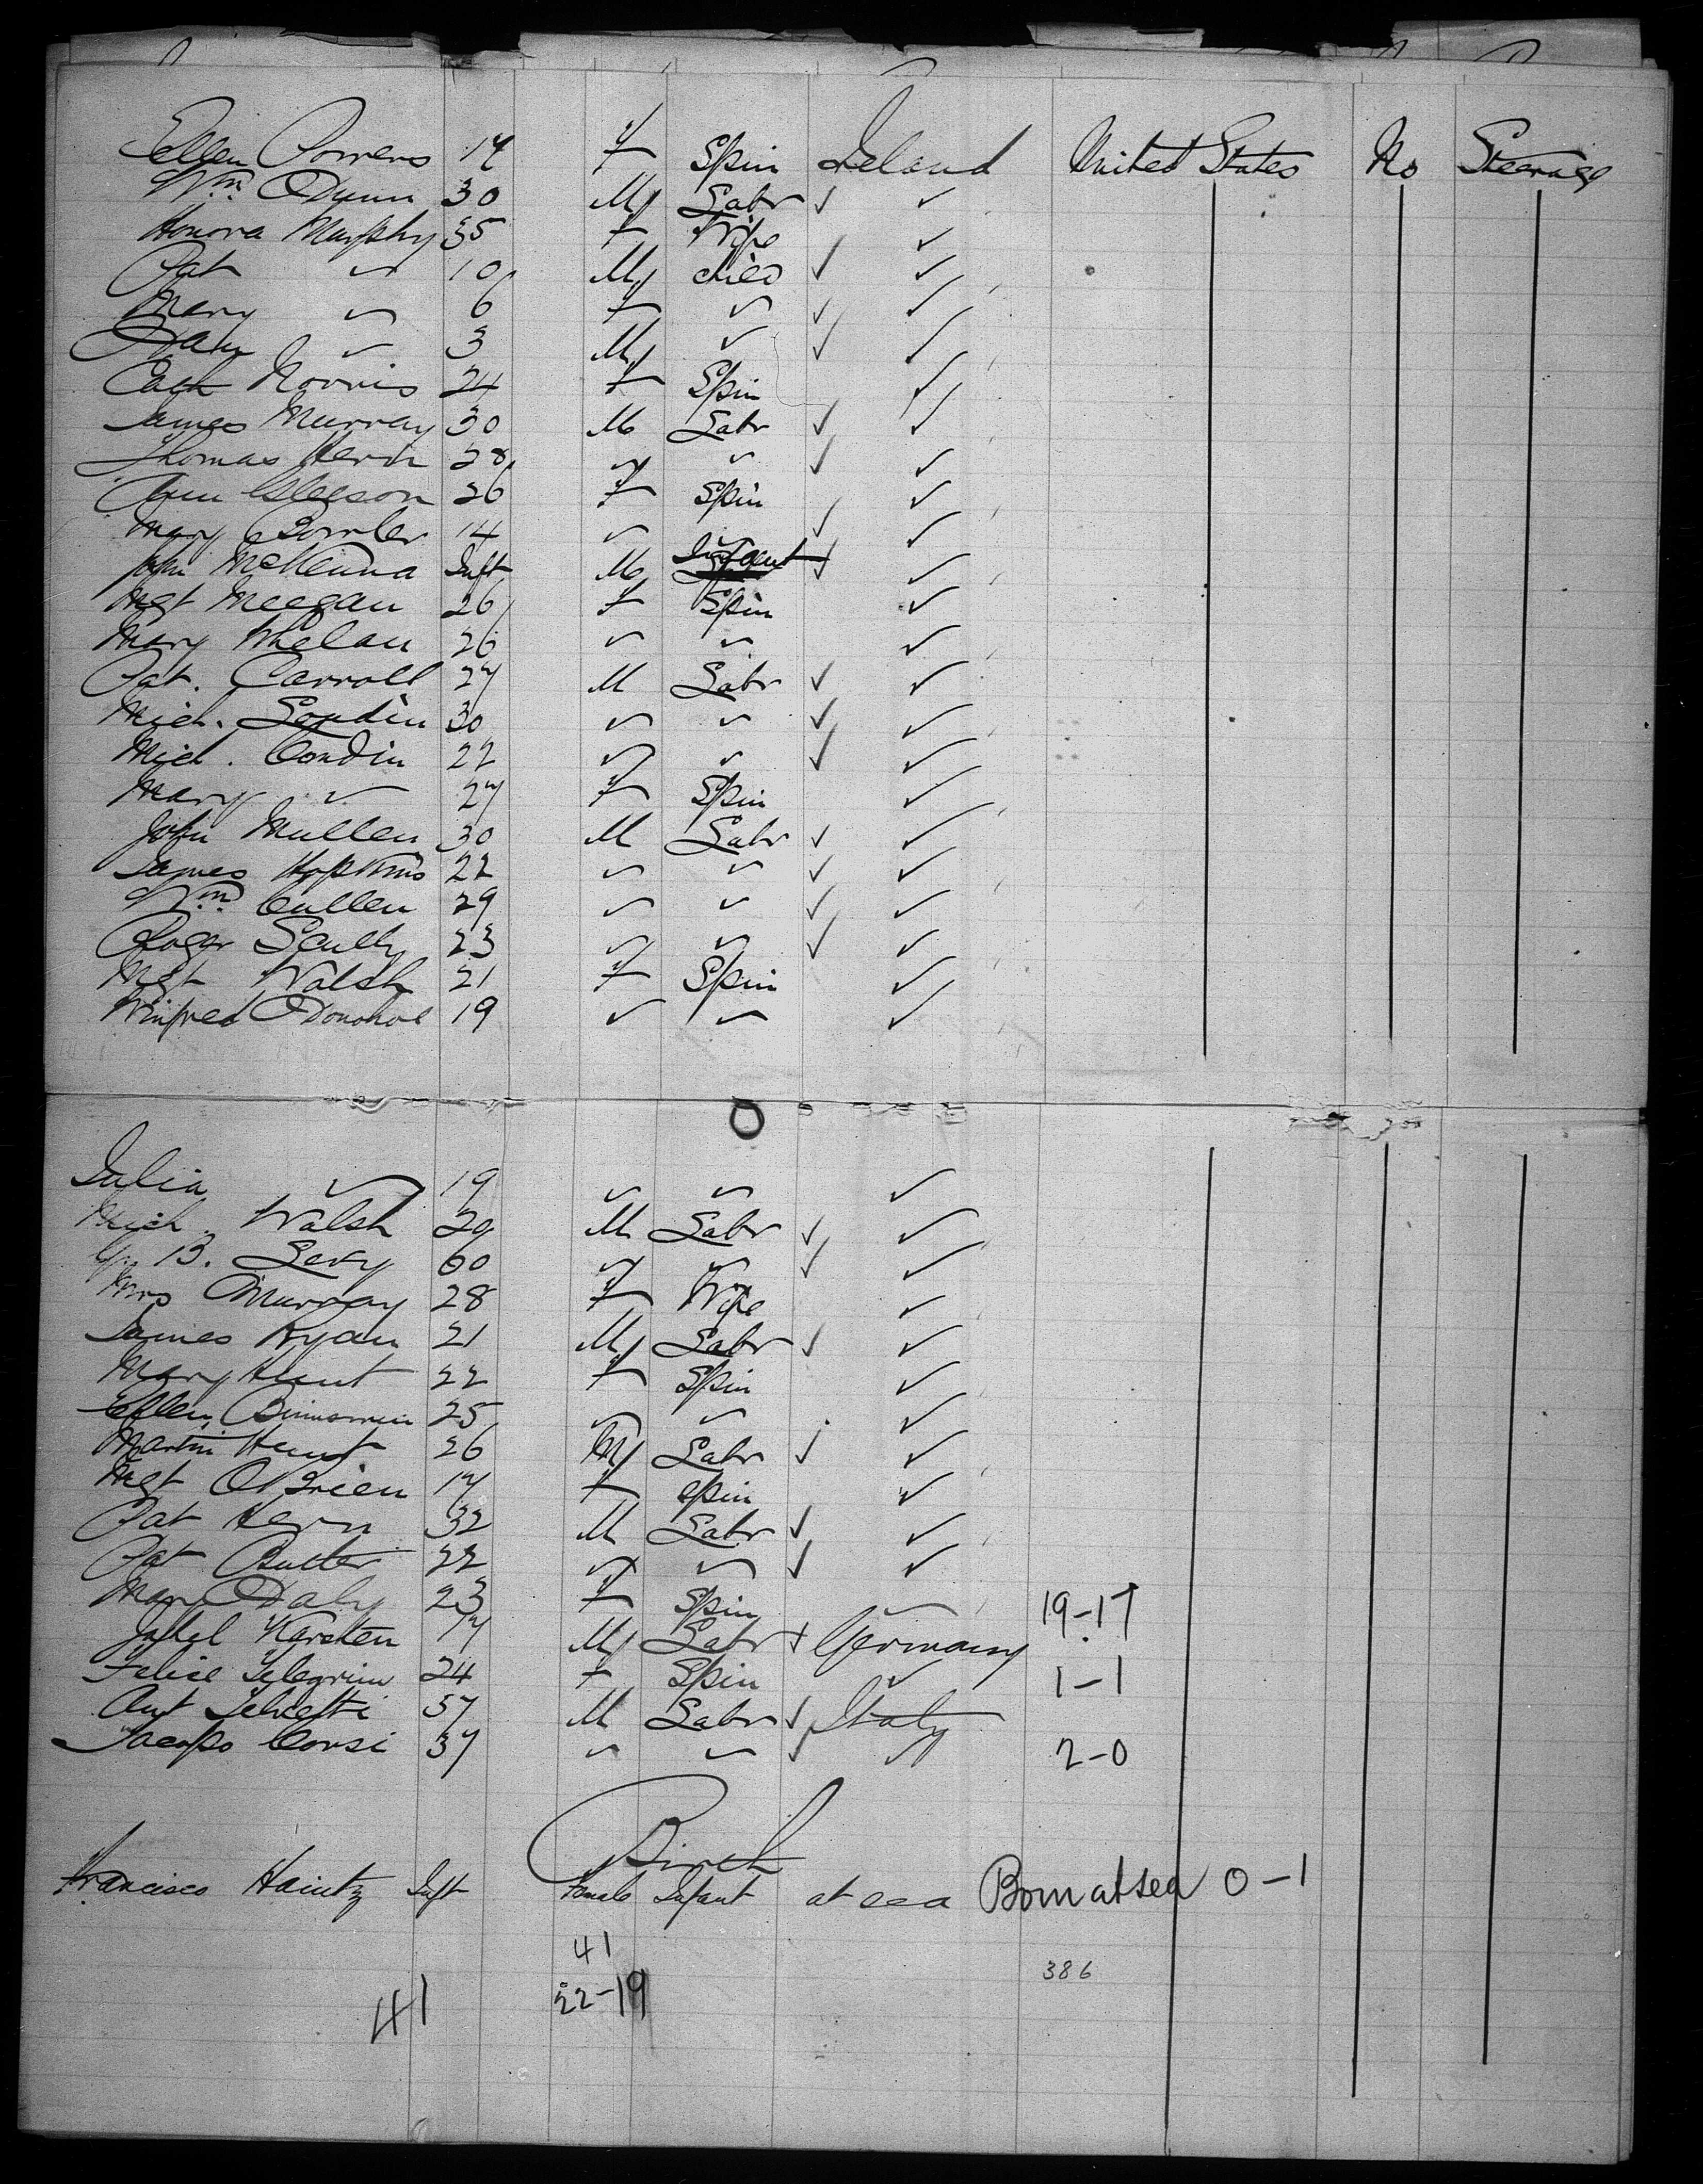 Ellen Powers 17 F Spin Ireland United States No Steerage
Wm ODunn 30 M Labr ✓ ✓
Honora Murphy 35 F Wife ✓
Pat ✓ 10 M child ✓ ✓
Mary ✓ 6 F ✓ ✓ ✓
✓ 3 M ✓ ✓ ✓
Cath Norris 24 F Spin ✓
James Murray 30 M Labr ✓ ✓
Thomas Hern 28 ✓ ✓ ✓ ✓
Ann Gleeson 26 F Spin ✓
Mary 14 ✓ ✓ ✓
John McKenna Inft M Infant ✓ ✓
Mgt Meegan 26 F Spin ✓
Mary Whelan 26 ✓ ✓ ✓
Pat. Carroll 27 M Labr ✓ ✓
Mich. 30 ✓ ✓ ✓ ✓
Mich. Condin 22 ✓ ✓ ✓ ✓
Mary ✓ 27 F Spin ✓
John Mullen 30 M Labr ✓ ✓
James Hopkins 22 ✓ ✓ ✓ ✓
Wm Cullen 29 ✓ ✓ ✓ ✓
Roger Scully 23 ✓ ✓ ✓ ✓
Mgt Walsh 21 F Spin ✓
Winfred ODonohoe 19 ✓ ✓ ✓
Julia ✓ 19 ✓ ✓ ✓
Mich. Walsh 29 M Labr ✓ ✓
B. Levy 60 ✓ ✓ ✓ ✓
Mrs Murray 28 F Wife ✓
James Ryan 21 M Labr ✓ ✓
Mary Hunt 22 F Spin ✓
Ellen 25 ✓ ✓ ✓
Martin Hunt 26 M Labr ✓ ✓
Mgt OBrien 17 F Spin ✓
Pat Hern 32 M Labr ✓ ✓
Pat Butler 22 ✓ ✓ ✓ ✓
Mary Daly 23 F Spin ✓ 19-17
Karsten 17 M Labr + Germany
Felice 24 F Spin ✓ 1-1
Ant 57 M Labr ✓ Italy
Jacopo Corsi 37 ✓ ✓ ✓ ✓ 2-0
Birth
Francisco Haintz Inft Female Infant at sea Born at sea 0-1
41
386
41 22-19